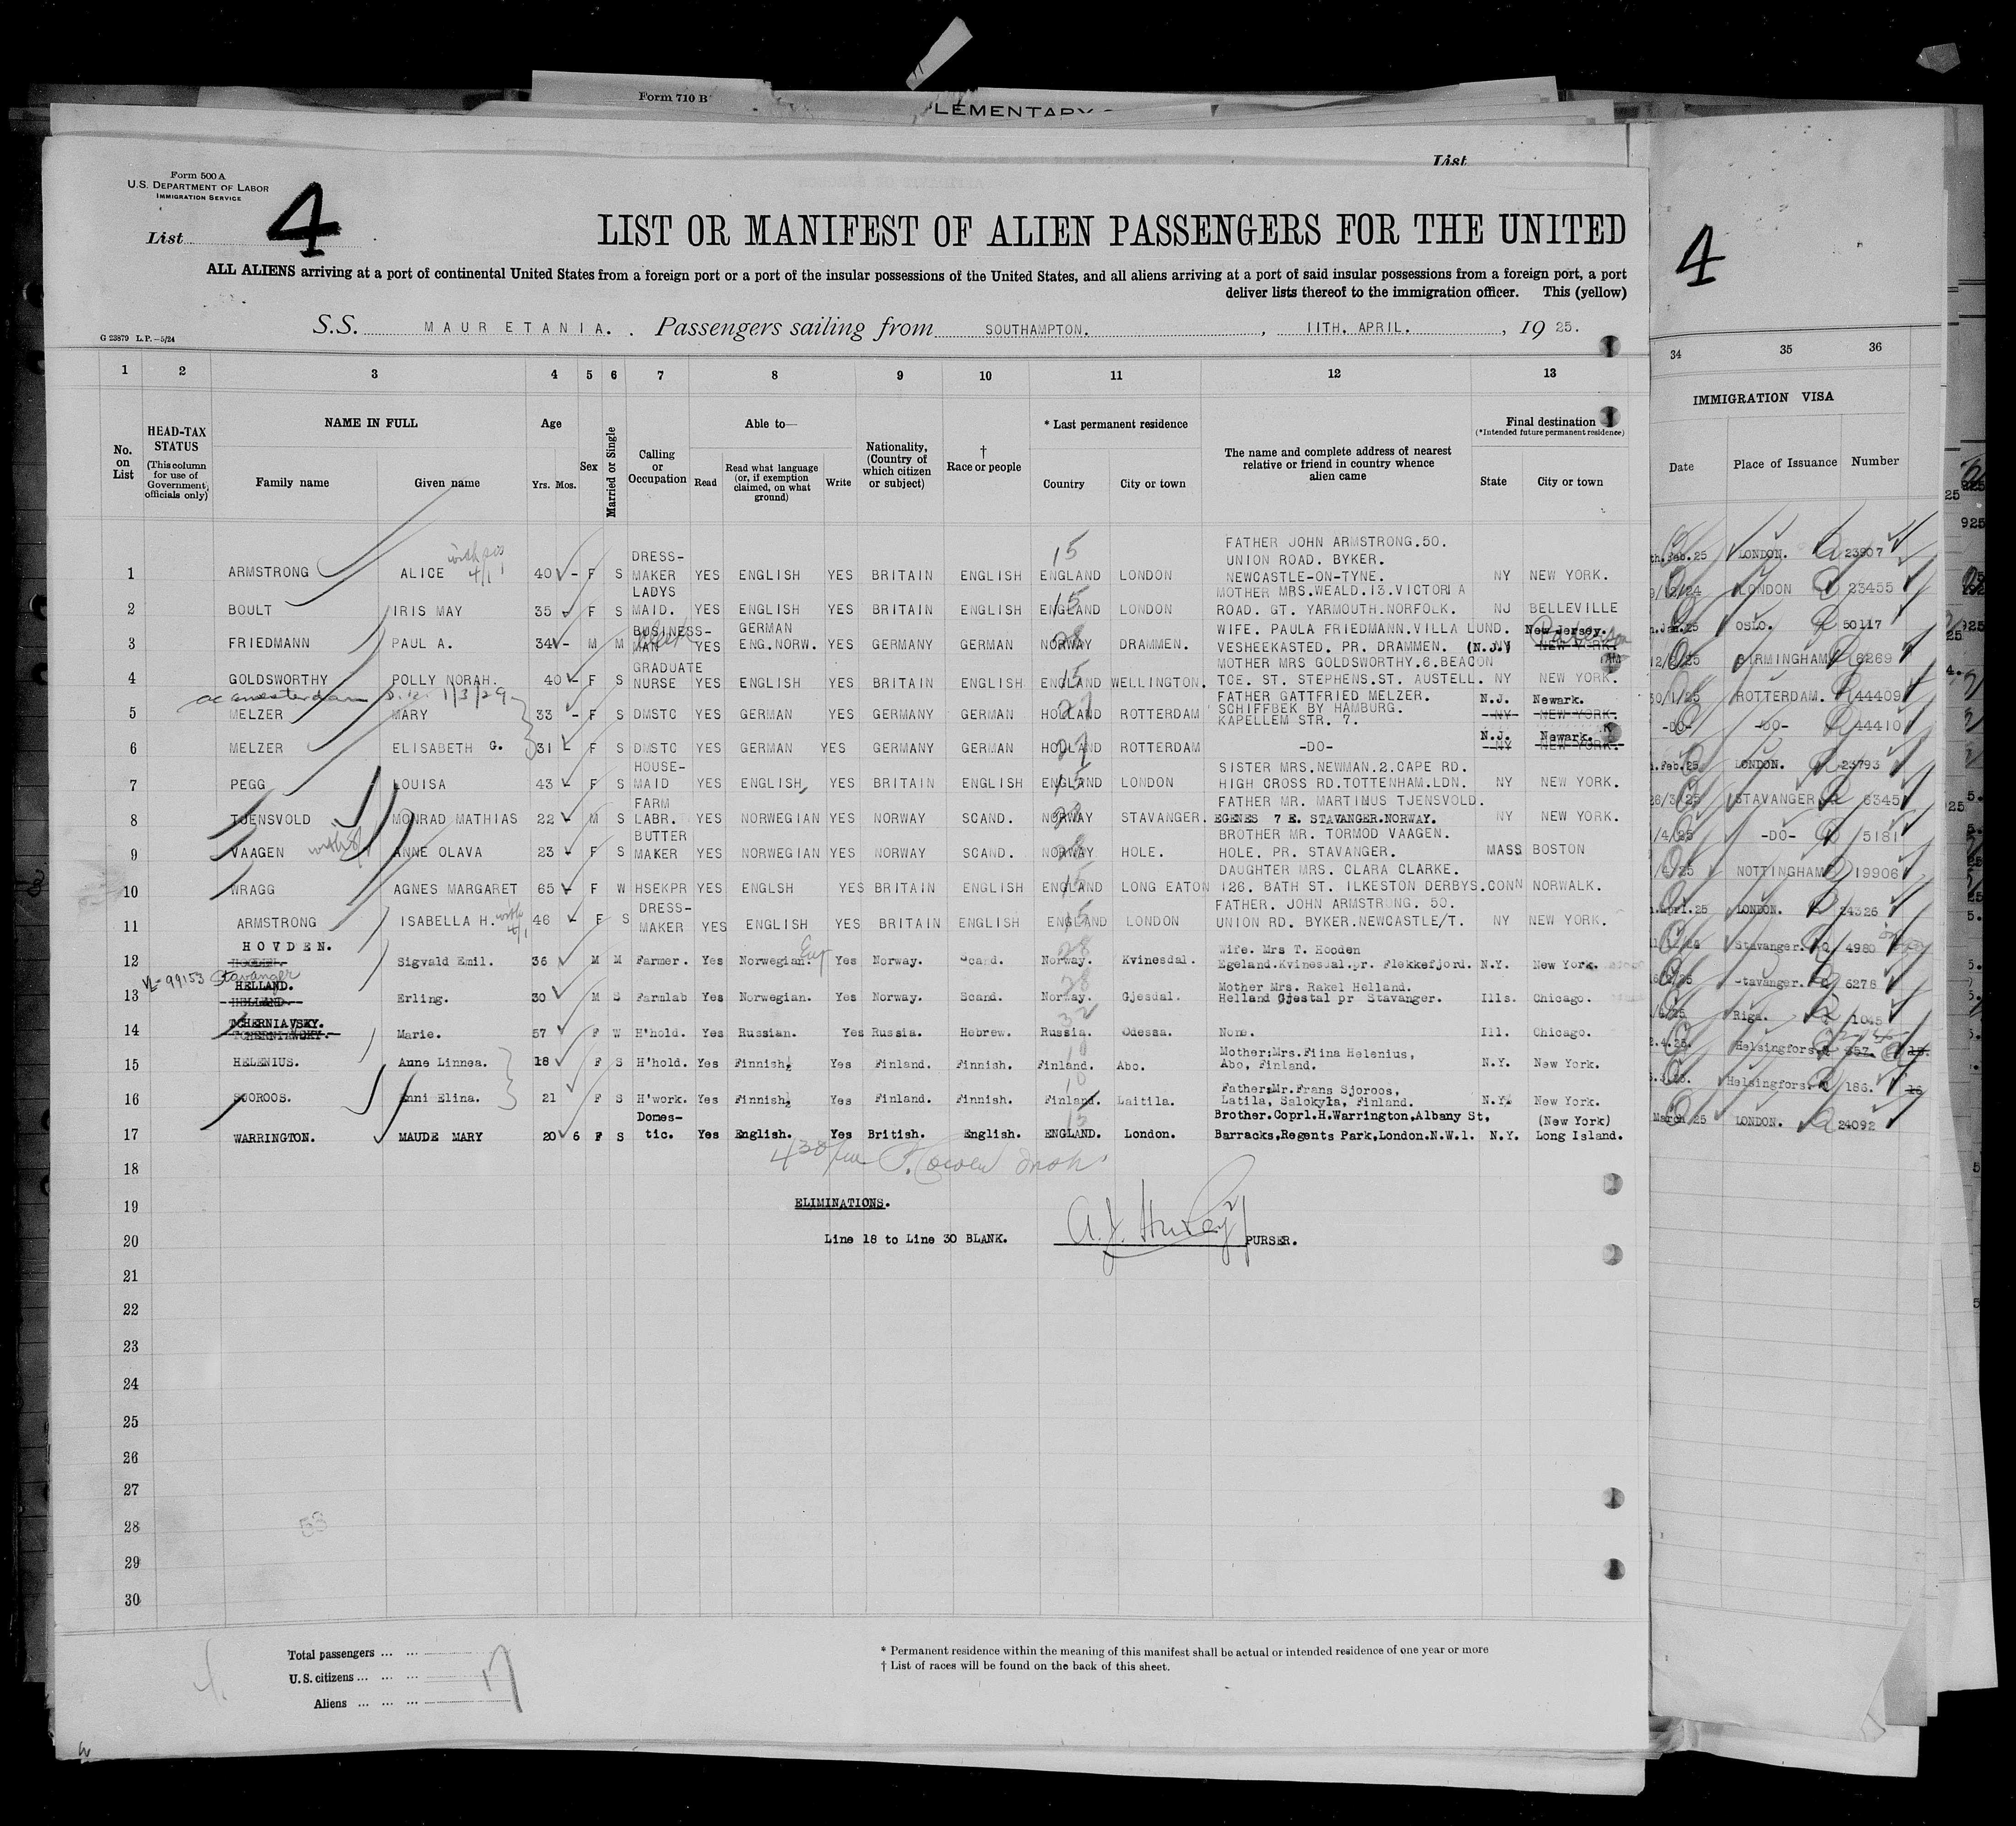 Form 710 B
LEMENTARY
List
Form 500 A
U.S. DEPARTMENT OF LABOR
IMMIGRATION SERVICE
List 4
4
LIST OR MANIFEST OF ALIEN PASSENGERS FOR THE UNITED
ALL ALIENS arriving at a port of continental United States from a foreign port or a port of the insular possessions of the United States, and all aliens arriving at a port of said insular possessions from a foreign port, a port
deliver lists thereof to the immigration officer. This (yellow)
S.S. MAURETANIA. Passengers sailing from SOUTHAMPTON. , 11TH. APRIL. , 19 25.
G 23879 L.P.—5/24
1 2 3 4 5 6 7 8 9 10 11 12 13 34 35 36
No. on List
HEAD-TAX STATUS (This column for use of Government officials only)
NAME IN FULL Family name Given name
Age Yrs. Mos.
Sex
Married or Single
Calling or Occupation
Able to— Read Read what language (or, if exemption claimed, on what ground) Write
Nationality, (Country of which citizen or subject)
† Race or people
* Last permanent residence Country City or town
The name and complete address of nearest relative or friend in country whence alien came
Final destination (*Intended future permanent residence) State City or town
IMMIGRATION VISA Date Place of Issuance Number
1 ARMSTRONG ALICE 40 - F S DRESS-MAKER YES ENGLISH YES BRITAIN ENGLISH 15 ENGLAND LONDON FATHER JOHN ARMSTRONG.50. UNION ROAD. BYKER. NEWCASTLE-ON-TYNE. NY NEW YORK. th.Feb.25 LONDON. 23907
2 BOULT IRIS MAY 35 - F S LADYS MAID. YES ENGLISH YES BRITAIN ENGLISH 15 ENGLAND LONDON MOTHER MRS.WEALD.13.VICTORIA ROAD. GT. YARMOUTH.NORFOLK. NJ BELLEVILLE 9/12/24 LONDON 23455
3 FRIEDMANN PAUL A. 34 - M M BUSINESS-MAN YES GERMAN ENG.NORW. YES GERMANY GERMAN 28 NORWAY DRAMMEN. WIFE. PAULA FRIEDMANN.VILLA LUND. VESHEEKASTED. PR. DRAMMEN. (N.J.) New Jersey. NEW YORK. n.Jan.25 OSLO. 50117
4 GOLDSWORTHY POLLY NORAH. 40 - F S GRADUATE NURSE YES ENGLISH YES BRITAIN ENGLISH 15 ENGLAND WELLINGTON. MOTHER MRS GOLDSWORTHY.6.BEACON TCE. ST. STEPHENS.ST. AUSTELL. NY NEW YORK. BIRMINGHAM 6269
1/3/29
5 MELZER MARY 33 - F S DMSTC YES GERMAN YES GERMANY GERMAN 27 HOLLAND ROTTERDAM FATHER GATTFRIED MELZER. SCHIFFBEK BY HAMBURG. KAPELLEM STR. 7. N.J. Newark. NY NEW YORK. 30/1/25 ROTTERDAM. 44409
6 MELZER ELISABETH G. 31 - F S DMSTC YES GERMAN YES GERMANY GERMAN 27 HOLLAND ROTTERDAM -DO- N.J. Newark. NY NEW YORK. -DO- -DO- 44410
7 PEGG LOUISA 43 - F S HOUSE-MAID YES ENGLISH YES BRITAIN ENGLISH 15 ENGLAND LONDON SISTER MRS.NEWMAN.2.CAPE RD. HIGH CROSS RD.TOTTENHAM.LDN. NY NEW YORK. .Feb.25 LONDON. 23793
8 TJENSVOLD MONRAD MATHIAS 22 - M S FARM LABR. YES NORWEGIAN YES NORWAY SCAND. 28 NORWAY STAVANGER. FATHER MR. MARTINUS TJENSVOLD. EGENES 7 E. STAVANGER.NORWAY. NY NEW YORK. 26/3/25 STAVANGER 6345
9 VAAGEN ANNE OLAVA 23 - F S BUTTER MAKER YES NORWEGIAN YES NORWAY SCAND. 28 NORWAY HOLE. BROTHER MR. TORMOD VAAGEN. HOLE. PR. STAVANGER. MASS BOSTON /4/25 -DO- 5181
10 WRAGG AGNES MARGARET 65 - F W HSEKPR YES ENGLSH YES BRITAIN ENGLISH 15 ENGLAND LONG EATON DAUGHTER MRS. CLARA CLARKE. 126. BATH ST. ILKESTON DERBYS. CONN NORWALK. /4/25 NOTTINGHAM 19906
11 ARMSTRONG ISABELLA H. 46 - F S DRESS-MAKER YES ENGLISH YES BRITAIN ENGLISH 15 ENGLAND LONDON FATHER. JOHN ARMSTRONG. 50. UNION RD. BYKER.NEWCASTLE/T. NY NEW YORK. .Aprl.25 LONDON. 24326
12 HOVDEN. HOODEN. Sigvald Emil. 36 M M Farmer. Yes Norwegian. Eng Yes Norway. Scand. 28 Norway. Kvinesdal. Wife. Mrs T. Hooden Egeland.Kvinesdal.pr. Flekkefjord. N.Y. New York. Stavanger. 4980
VL-99153 Stavanger
13 HELLAND. HELLAND. Erling. 30 M S Farmlab Yes Norwegian. Yes Norway. Scand. 28 Norway. Gjesdal. Mother Mrs. Rakel Helland. Helland Gjestal pr Stavanger. Ills. Chicago. Stavanger. 6278
14 TCHERNIAVSKY. Marie. 57 F W H'hold. Yes Russian. Yes Russia. Hebrew. 32 Russia. Odessa. None. Ill. Chicago. Riga. 1045
15 HELENIUS. Anne Linnea. 18 F S H'hold. Yes Finnish. Yes Finland. Finnish. Finland. Abo. Mother:Mrs.Fiina Helenius, Abo, Finland. N.Y. New York. 2.4.25. Helsingfors. 357.
16 SJOROOS. Anni Elina. 21 F S H'work. Yes Finnish. Yes Finland. Finnish. Finland. Laitila. Father:Mr.Frans Sjoroos, Latila, Salokyla, Finland. N.Y. New York. Helsingfors. 186. 16
17 WARRINGTON. MAUDE MARY 20 6 F S Domes-tic. Yes English. Yes British. English. 15 ENGLAND. London. Brother.Coprl.H.Warrington,Albany St, Barracks,Regents Park,London.N.W.1. N.Y. (New York) Long Island. March 25 LONDON. 24092
18
19 ELIMINATIONS.
20 Line 18 to Line 30 BLANK. PURSER.
21
22
23
24
25
26
27
28
29
30
53
Total passengers ... ...
U.S. citizens ... ... ...
Aliens ... ... ... 17
* Permanent residence within the meaning of this manifest shall be actual or intended residence of one year or more
† List of races will be found on the back of this sheet.